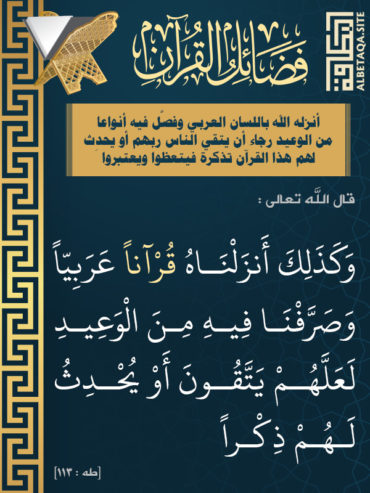 فضائل القرآن
البطاقة
ALBETAQA.SITE
أنزله الله باللسان العربي وفصّل فيه أنواعا
من الوعيد رجاء أن يتقي الناس ربهم أو يحدث
لهم هذا القرآن تذكرة فيتعظوا ويعتبروا
قال اللَّه تعالى :
وَكَذَلِكَ أَنزَلْنَاهُ قُرْآناً عَرَبِيّاً
وَصَرَّفْنَا فِيهِ مِنَ الْوَعِيدِ
لَعَلَّهُمْ يَتَّقُونَ أَوْ يُحْدِثُ
لَهُمْ ذِكْراً
[طه : ١١٣]